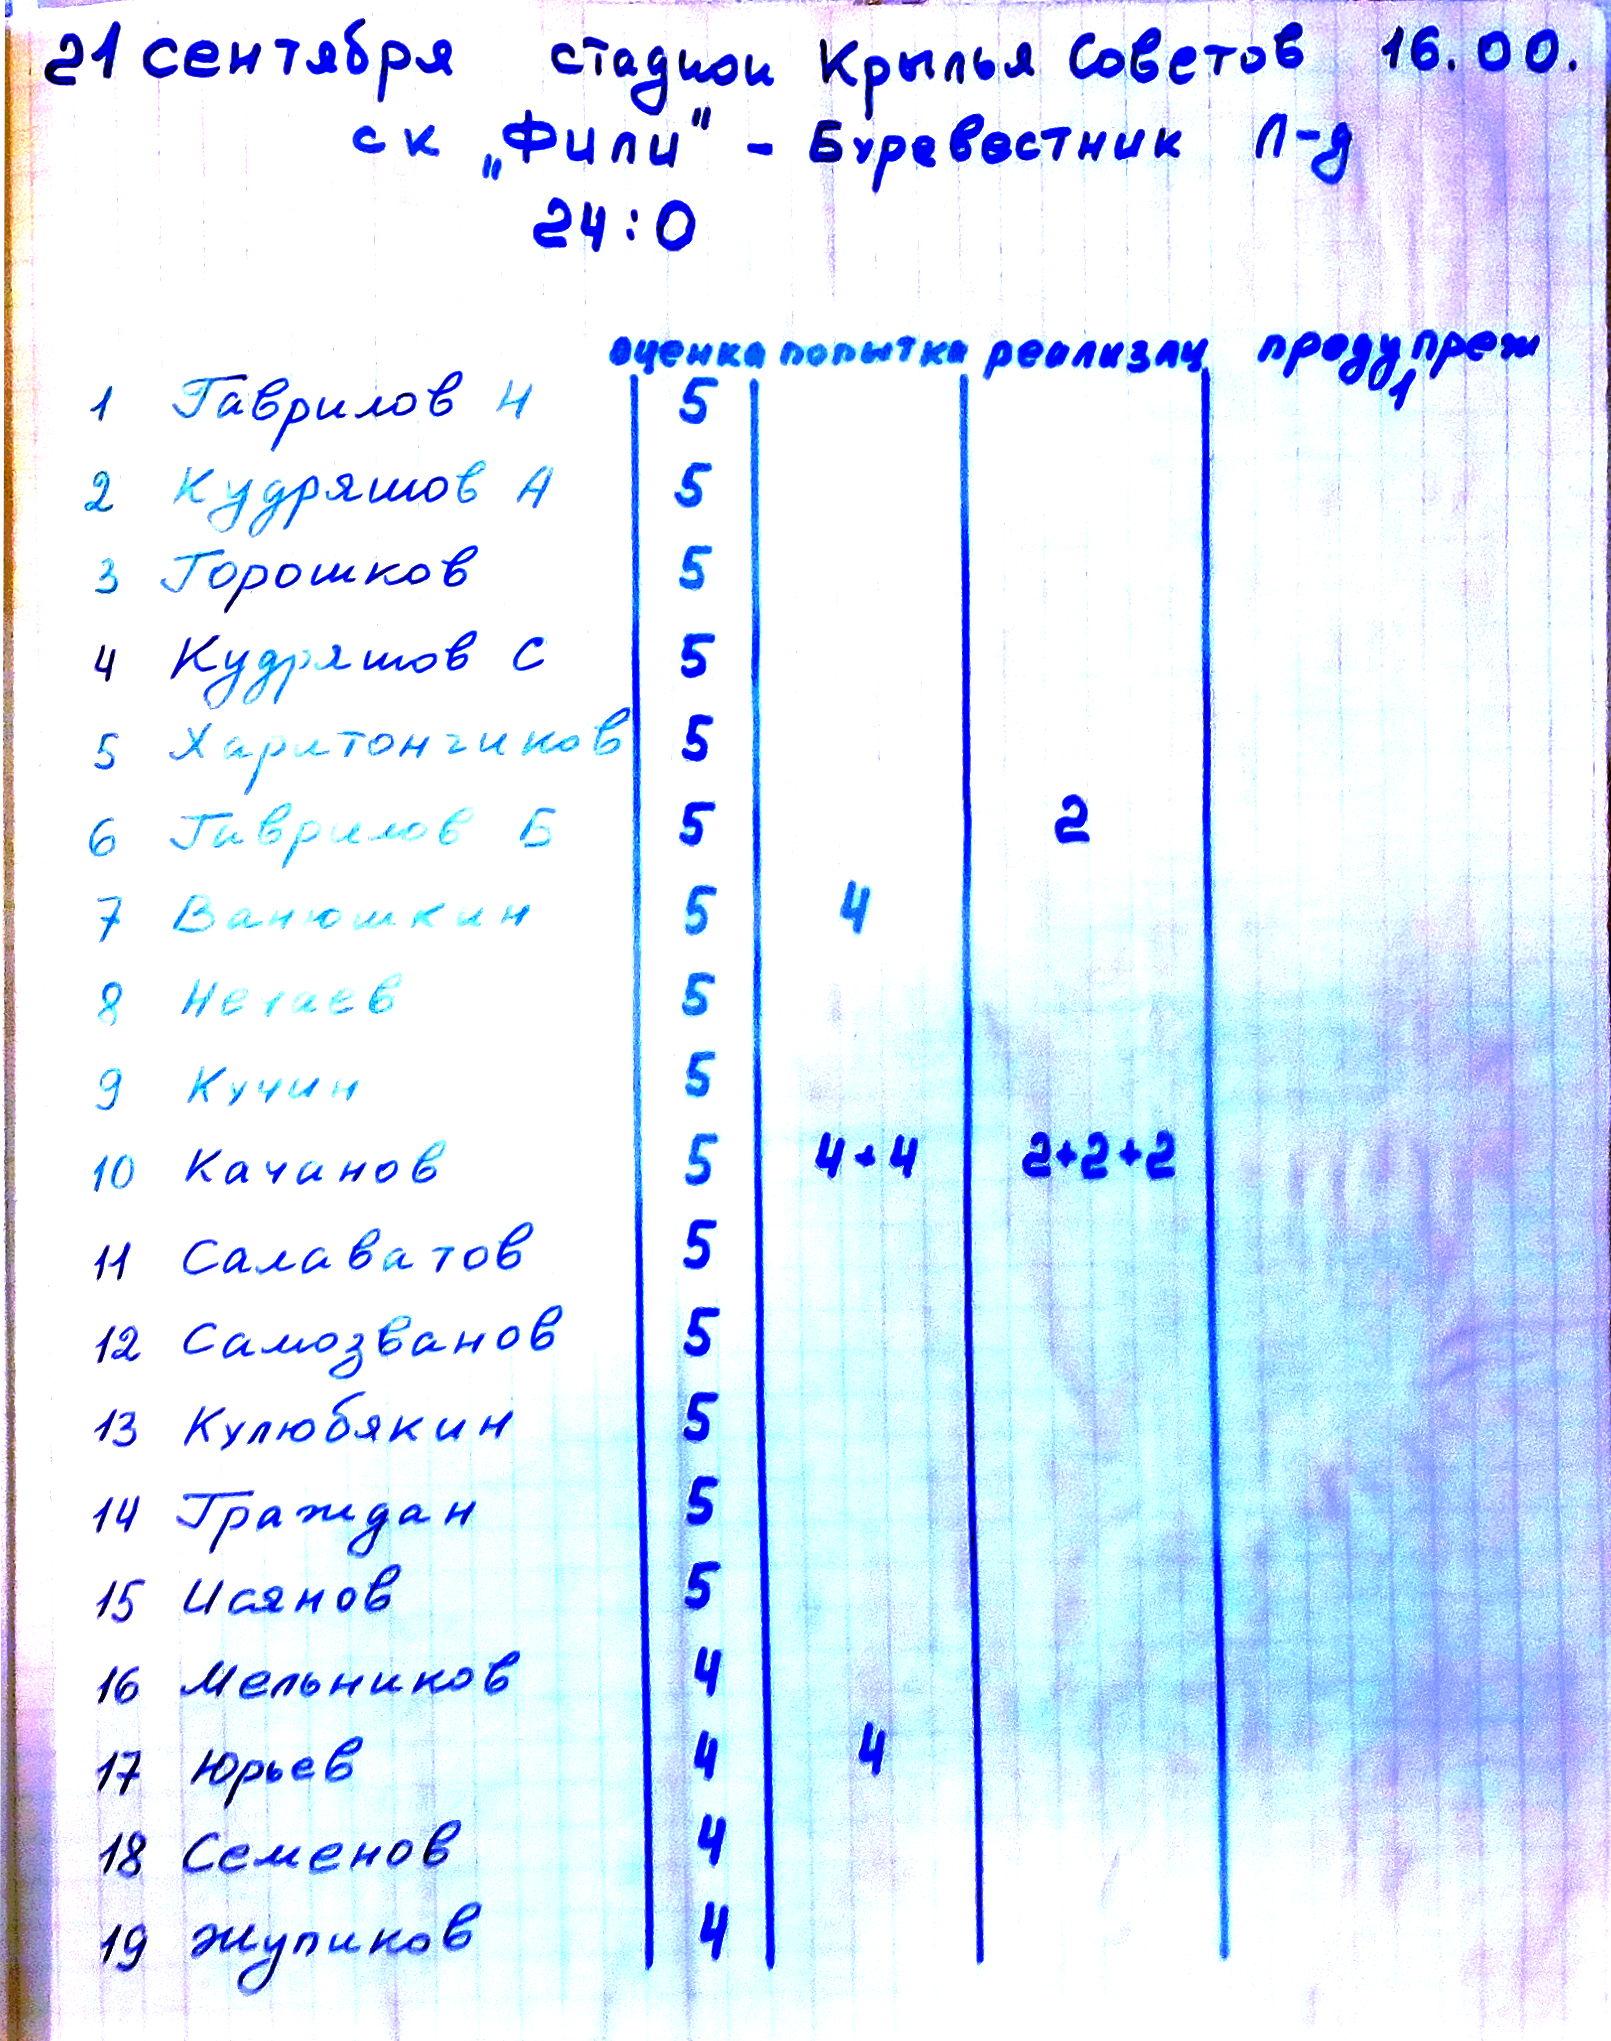 21 сентября стадион Крылья Советов 16.00.
ск „Фили" - Буревестник Л-д
24:0
оценка попытка реализац предупреж
1 Гаврилов Н 5 1
2 Кудряшов А 5
3 Горошков 5
4 Кудряшов С 5
5 Харитончиков 5
6 Гаврилов Б 5 2
7 Ванюшкин 5 4
8 Нечаев 5
9 Кучин 5
10 Качанов 5 4+4 2+2+2
11 Салаватов 5
12 Самозванов 5
13 Кулюбякин 5
14 Граждан 5
15 Исянов 5
16 Мельников 4
17 Юрьев 4 4
18 Семенов 4
19 Жупиков 4